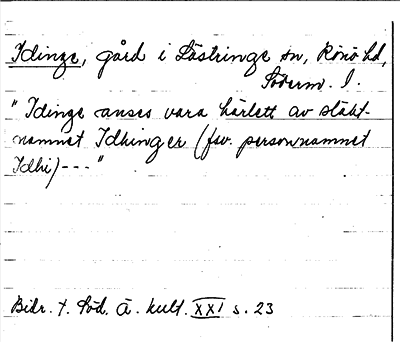 Idinge, gård i Lästringe sn, Rönö hd,
Söderm. l.
"Idinge anses vara härlett av släkt-
namnet Idhinger (fsv. personnamnet
Idhi) --- "
Bidr. t. Söd. ä. kult. XXI s. 23